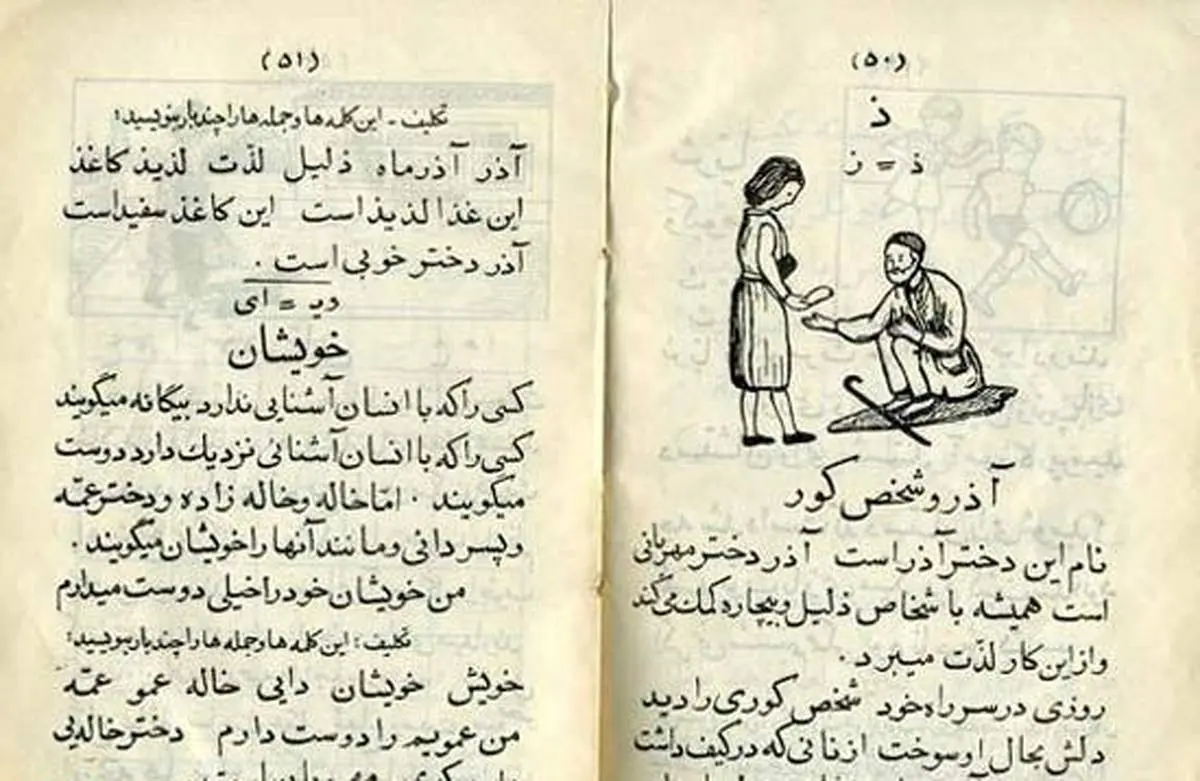 (۵۰)
ذ
ذ = ز
آذر و شخص کور
نام این دختر آذر است آذر دختر مهربانی
است همیشه با شخاص ذلیل و بیچاره کمک می‌کند
و از این کار لذّت میبرد.
روزی در سر راه خود شخص کوری را دید
دلش بحال او سوخت از نانی که در کیف داشت
(۵۱)
تکلیف - این کلمه ها و جمله ها را چند بار بنویسید:
آذر آذر ماه ذلیل لذّت لذیذ کاغذ
این غذا لذیذ است این کاغذ سفید است
آذر دختر خوبی است.
ویـ = ای
خویشان
کسی را که با انسان آشنایی ندارد بیگانه میگویند
کسی را که با انسان آشنائی نزدیک دارد دوست
میگویند. امّا خاله و خاله زاده و دختر عمّه
و پسر دائی و مانند آنها را خویشان میگویند.
من خویشان خود را خیلی دوست میدارم
تکلیف: این کلمه ها و جمله ها را چند بار بنویسید:
خویش خویشان دایی خاله عمو عمّه
من عمویم را دوست دارم دختر خاله‌یی